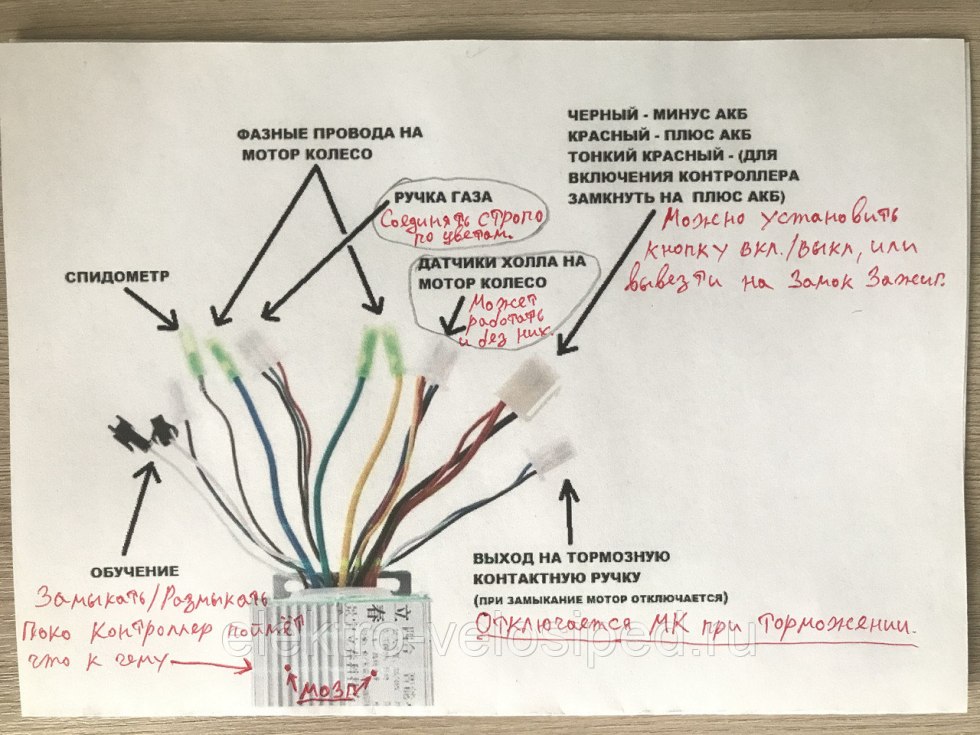 ФАЗНЫЕ ПРОВОДА НА
МОТОР КОЛЕСО
ЧЕРНЫЙ - МИНУС АКБ
КРАСНЫЙ - ПЛЮС АКБ
ТОНКИЙ КРАСНЫЙ - (ДЛЯ
ВКЛЮЧЕНИЯ КОНТРОЛЛЕРА
ЗАМКНУТЬ НА ПЛЮС АКБ)
Можно установить
кнопку вкл./выкл, или
вывезти на Замок Зажиг.
РУЧКА ГАЗА
Соединять строго
по цветам.
ДАТЧИКИ ХОЛЛА НА
МОТОР КОЛЕСО
Может
работать
и без них.
СПИДОМЕТР
ОБУЧЕНИЕ
Замыкать/Размыкать
Пока контроллер поймёт
что к чему
ВЫХОД НА ТОРМОЗНУЮ
КОНТАКТНУЮ РУЧКУ
(ПРИ ЗАМЫКАНИЕ МОТОР ОТКЛЮЧАЕТСЯ)
Отключается МК при Торможении.
МОЗГ
elektro-velosiped.ru